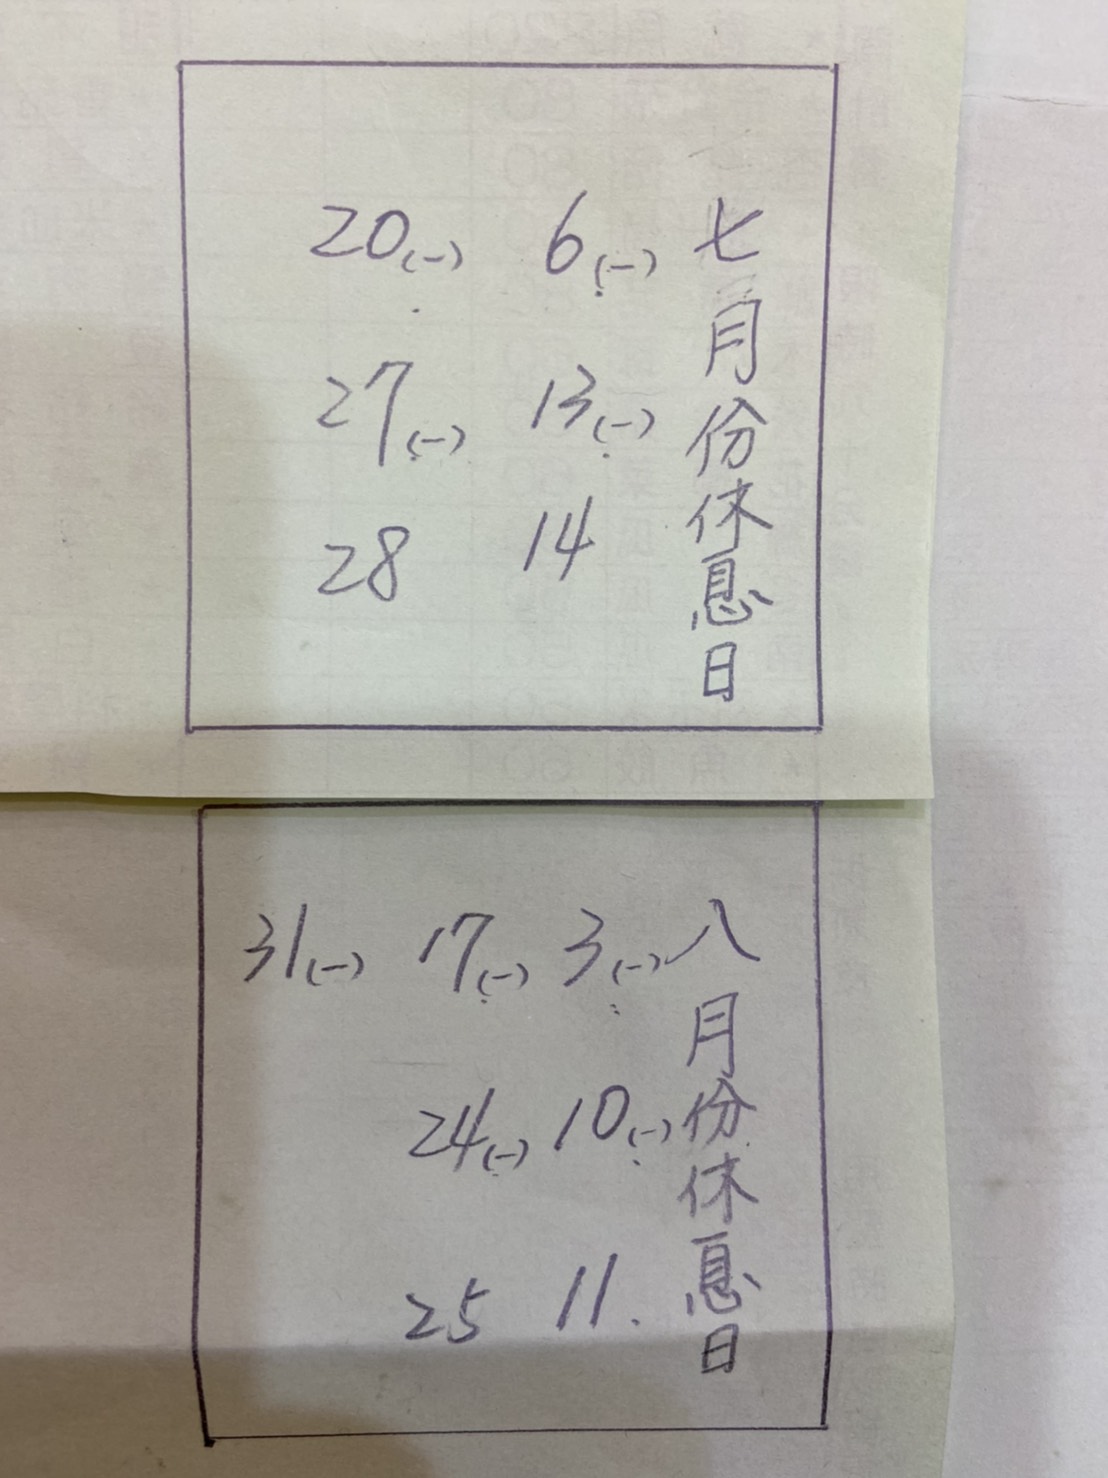 七月份休息日
6(一)
13(一)
14
20(一)
27(一)
28
八月份休息日
3(一)
10(一)
11.
17(一)
24(一)
25
31(一)